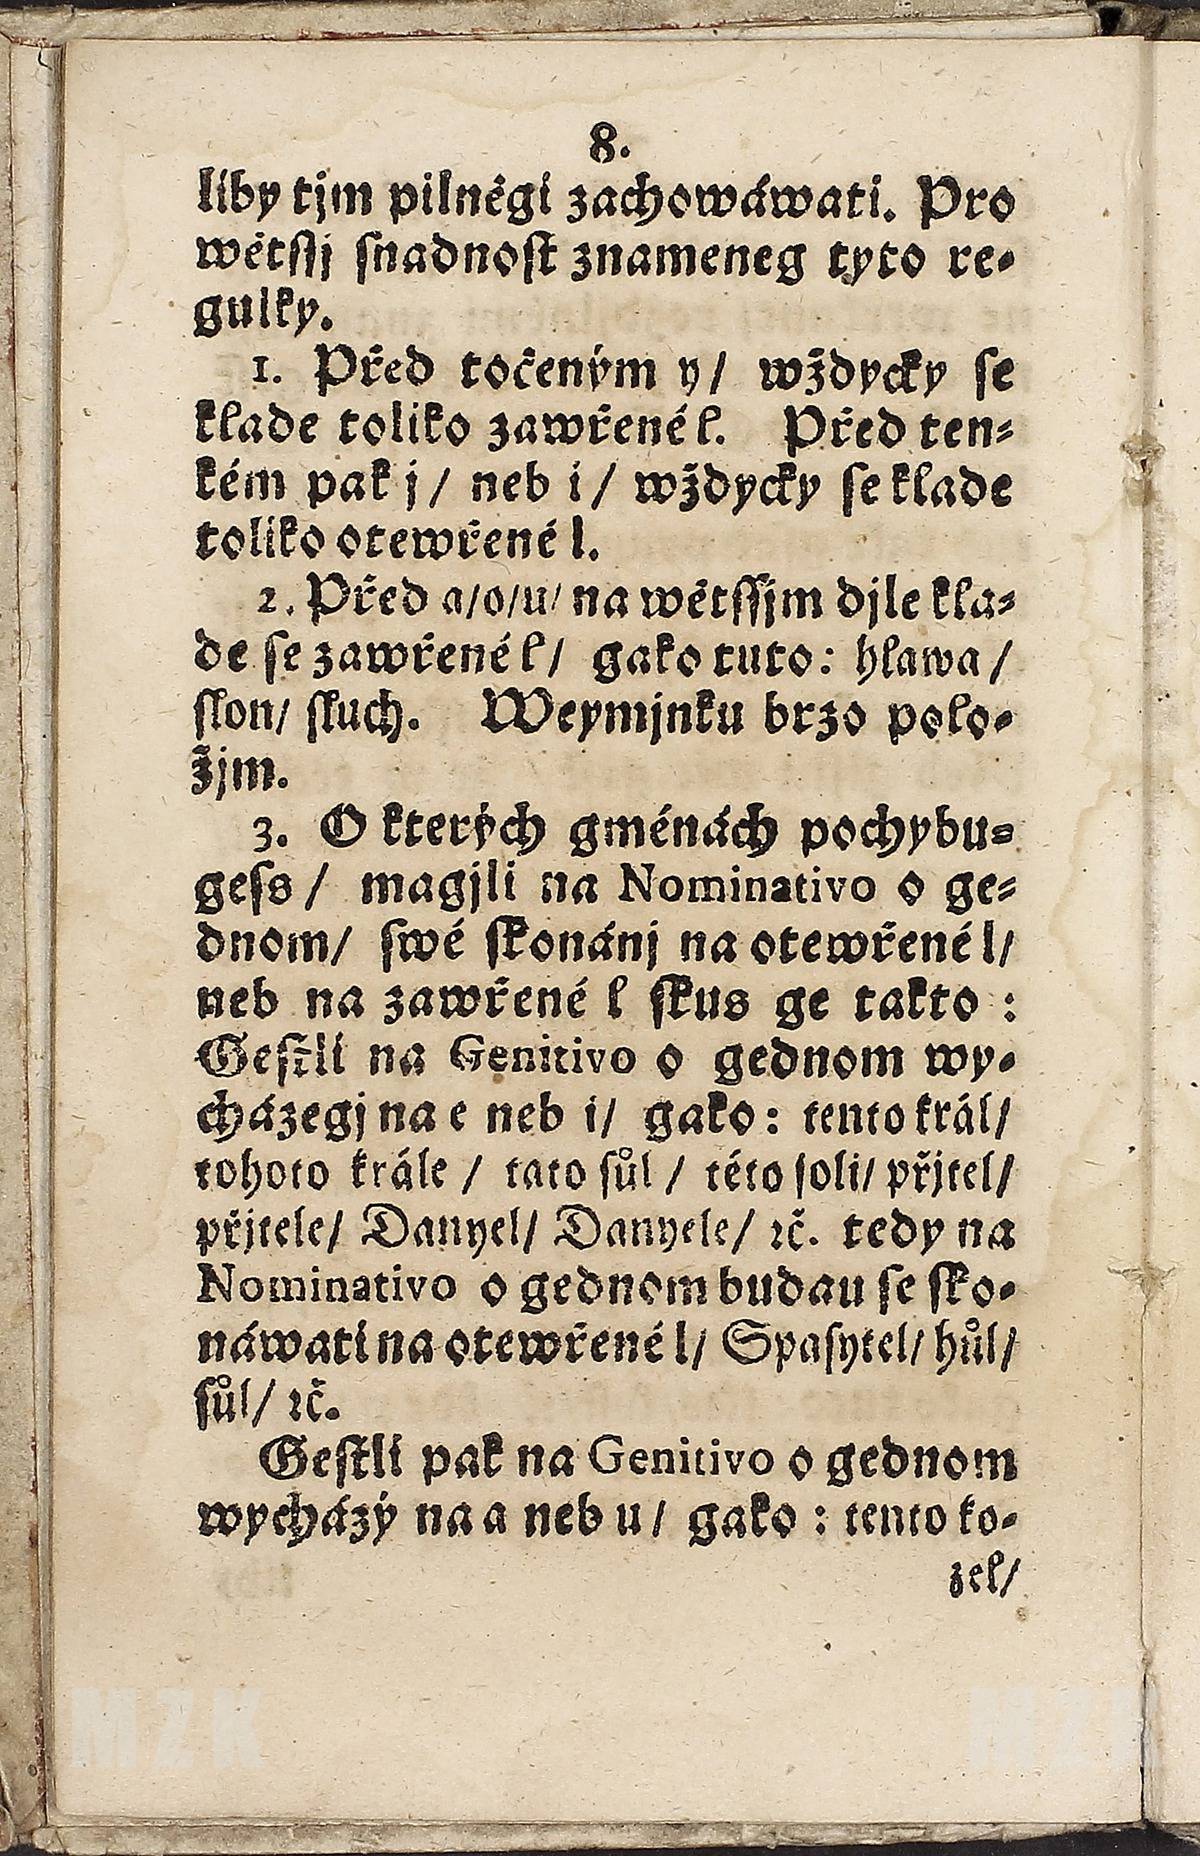 8.
liby tjm pilněgi zachowáwati. Pro
wětſſj ſnadnoſt znameneg tyto re-
gulky.
1. Před točeným y/ wždycky ſe
klade toliko zawřené ł. Před ten-
kém pak j/ neb i/ wždycky ſe klade
toliko otewřené l.
2. Před a/o/u/ na wětſſjm djle kla-
de ſe zawřené ł/ gako tuto: hława/
ſłon/ ſłuch. Weymjnku brzo polo-
žjm.
3. O kterých gménách pochybu-
geſs/ magjli na Nominativo o ge-
dnom/ ſwé ſkonánj na otewřené l/
neb na zawřené l ſkus ge takto:
Geſtli na Genitivo o gednom wy-
cházegj na e neb i/ gako: tento král/
tohoto krále/ tato ſůl/ této ſoli/ přjtel/
přjtele/ Danyel/ Danyele/ ꝛč. tedy na
Nominativo o gednom budau ſe ſko-
náwati na otewřené l/ Spaſytel/ hůl/
ſůl/ ꝛč.
Geſtli pak na Genitivo o gednom
wycházý na a neb u/ gako: tento ko-
zeł/
MZK
MZK